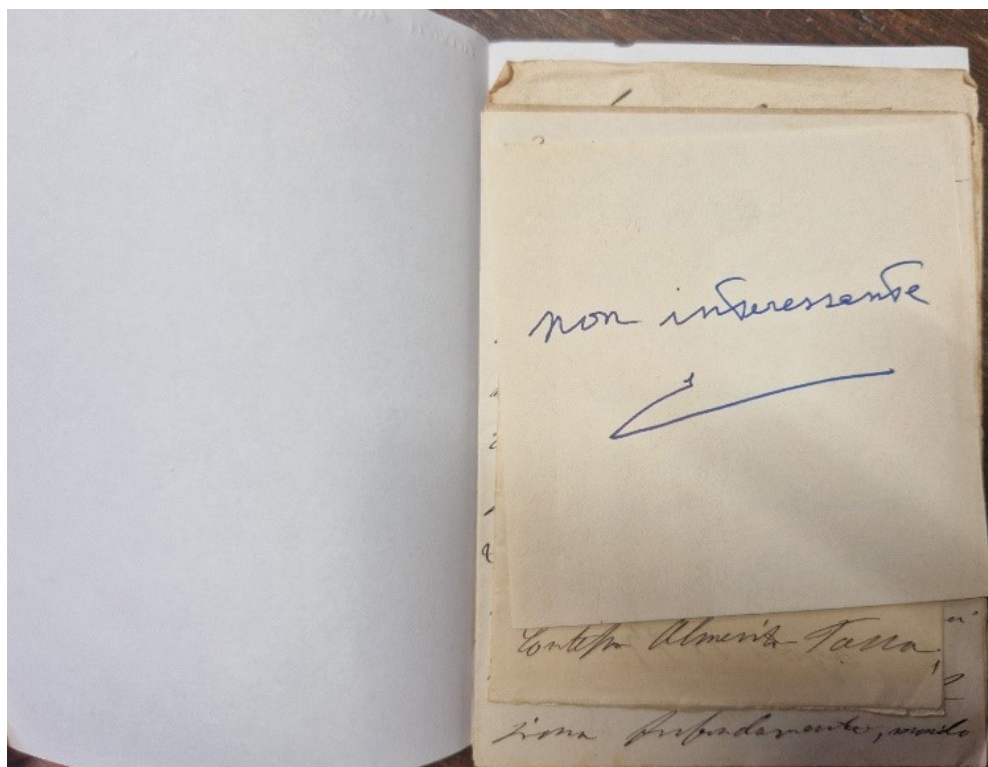 non interessante
Contessa Almerita Tasca
profondamente, mondo